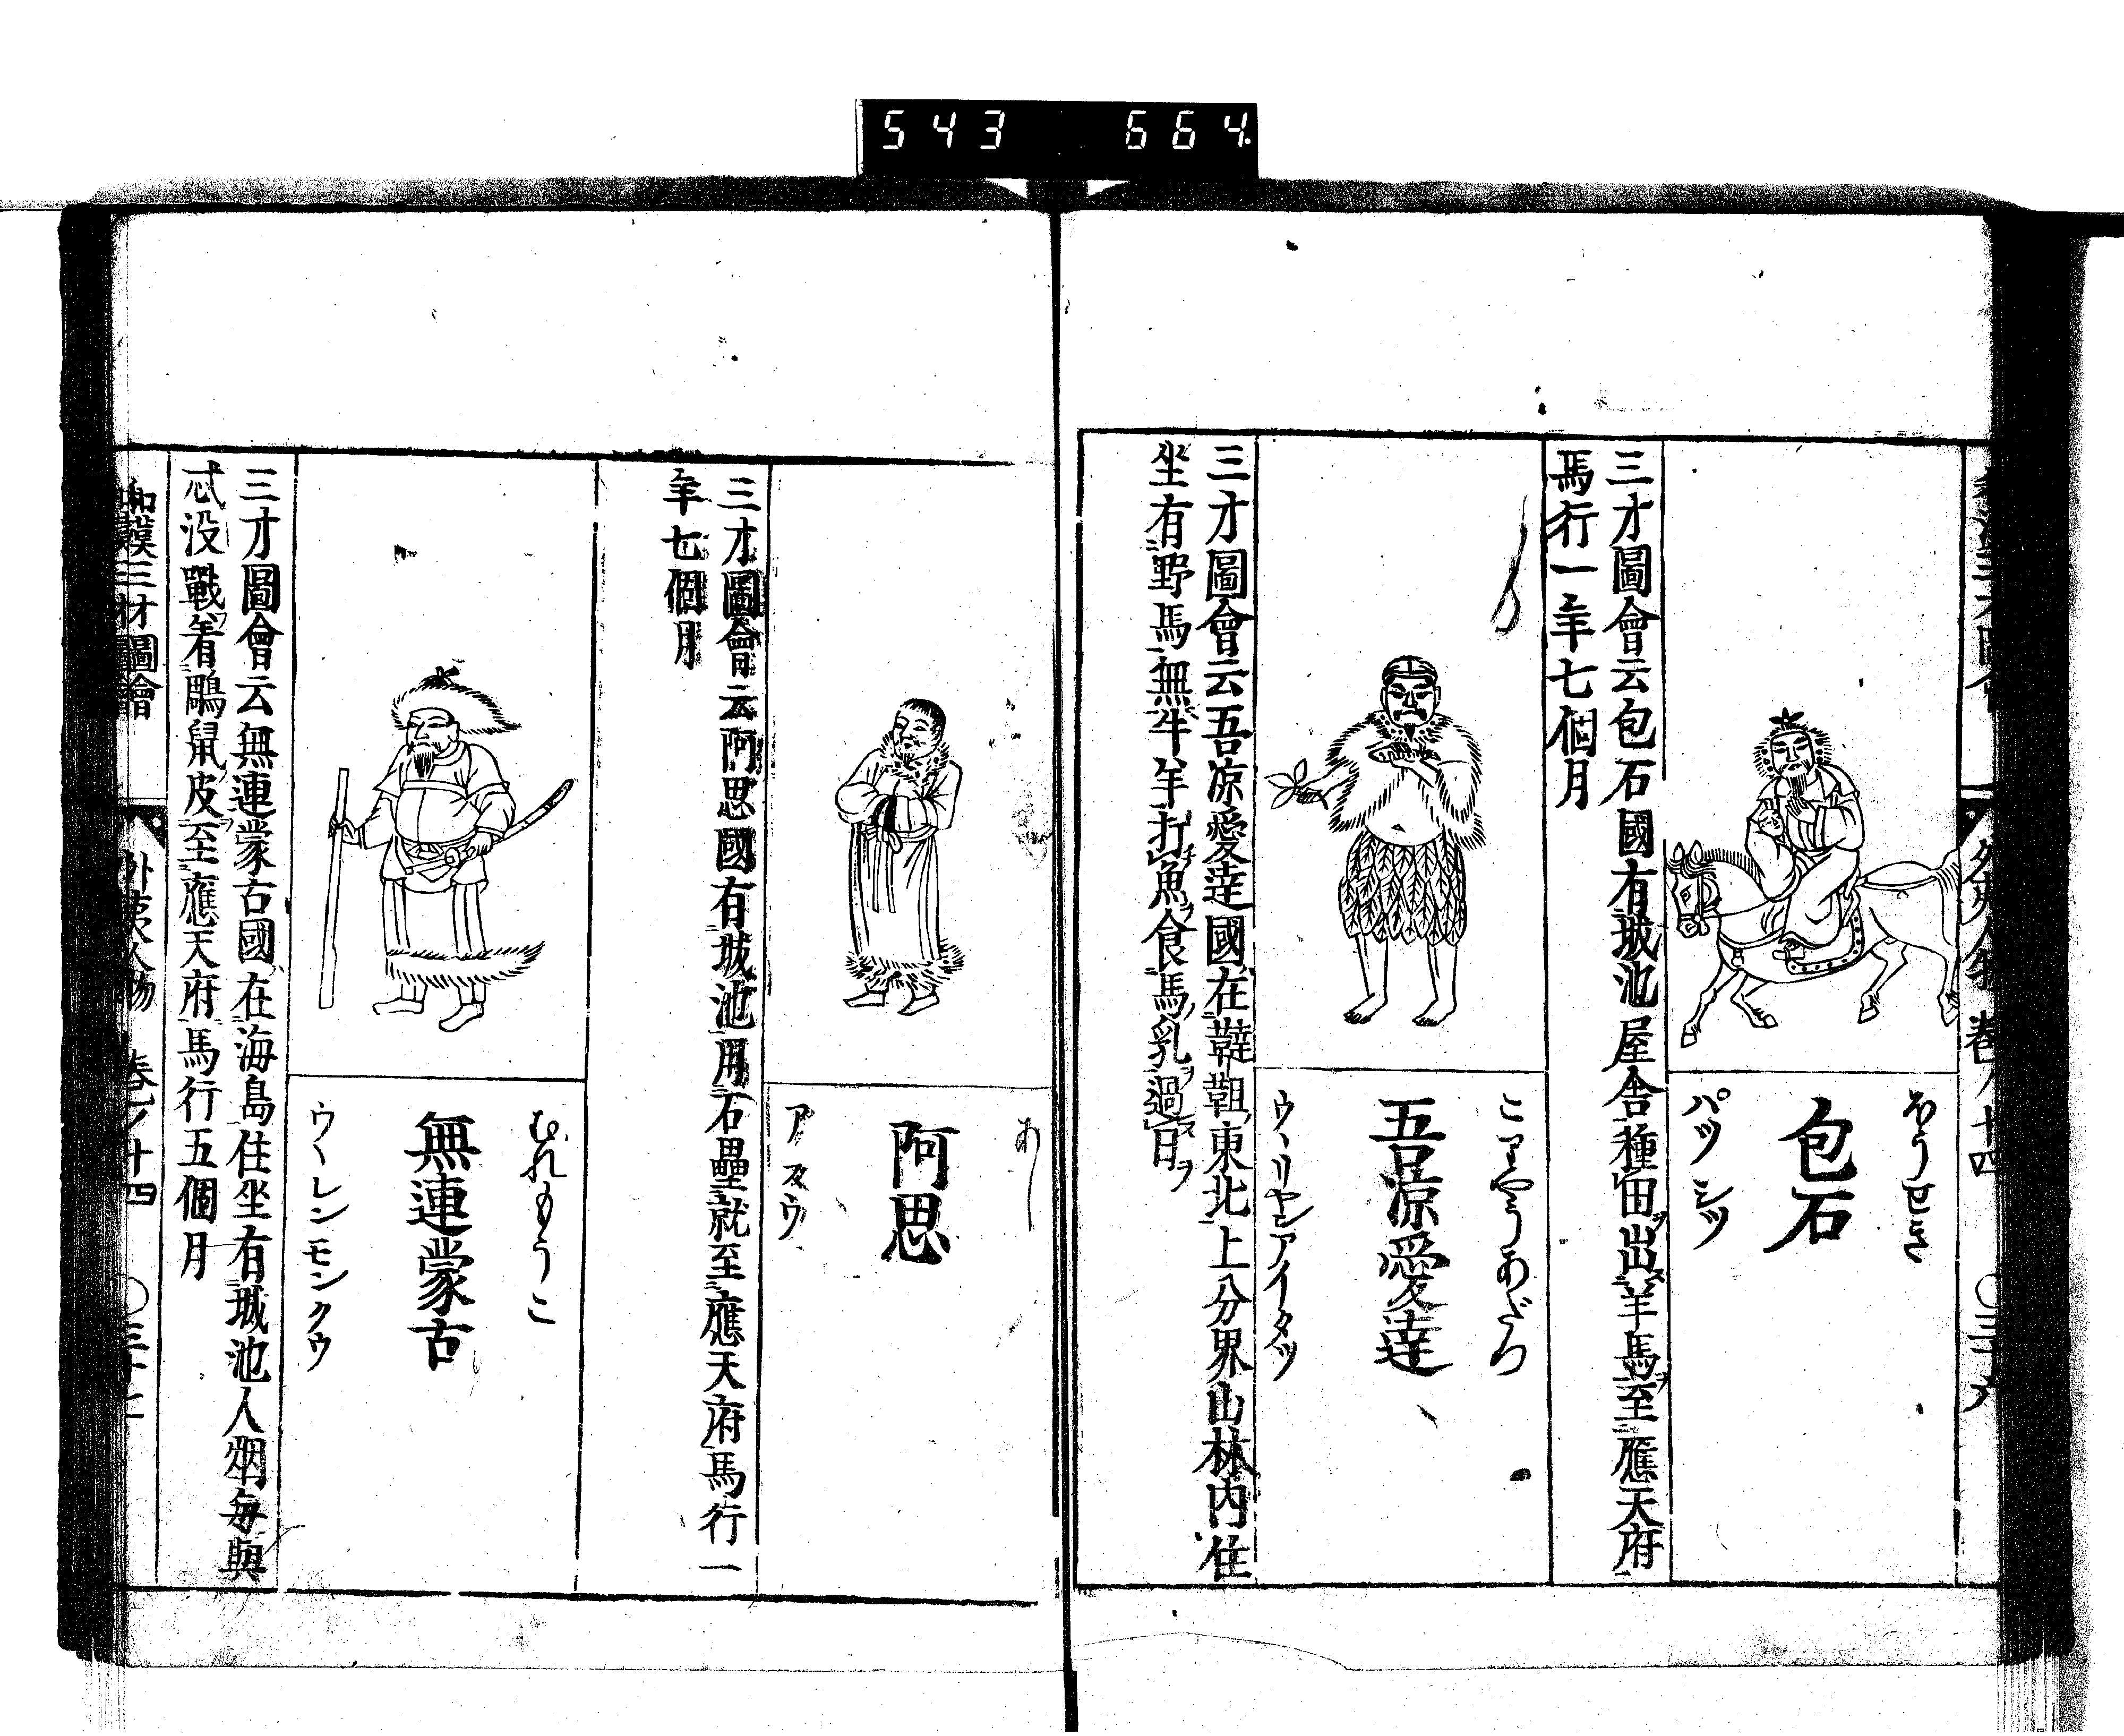 543 664
包石
はうせき
パツ シツ
三才圖會云包石國有城池屋舎種田出羊馬至應天府
馬行一年七個月
吾涼愛達
こりやうあだつ
ウヽリヤンアイタツ
三才圖會云吾凉愛達國在韃靼東北上分界山林内住
坐有野馬無牛羊打魚食馬乳過日
阿思
あし
アスウ
三才圖會云阿思國有城池用石壘就至應天府馬行一
年七個月
無連蒙古
むれもうこ
ウヽレンモンクウ
三才圖會云無連蒙古國在海島住坐有城池人烟毎與
忒没戰着鵰鼠皮至應天府馬行五個月
三才圖會
外夷人物 巻ノ十四